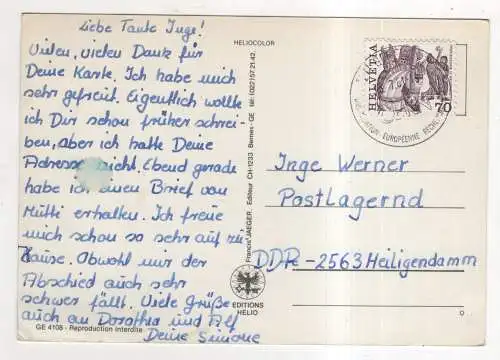 Liebe Tante Inge!
Vielen, vielen Dank für
Deine Karte. Ich habe mich
sehr gefreut. Eigentlich wollte
ich Dir schon früher schrei-
ben, aber ich hatte Deine
Adresse nicht. Ebend gerade
habe ich einen Brief von
Mutti erhalten. Ich freue
mich schon so sehr auf zu
Hause. Obwohl mir der
Abschied auch sehr
schwer fällt. Viele Grüße
auch an Dorothea und Alf
Deine Simone
GE 4108 - Reproduction interdite
HELIOCOLOR
Francis JAEGER, Editeur CH-1233 Bernex-GE tél. (022)57.21.42.
EDITIONS
HELIO
HELVETIA
70
EUROPÉENNE
Inge Werner
Postlagernd
DDR-2563 Heiligendamm